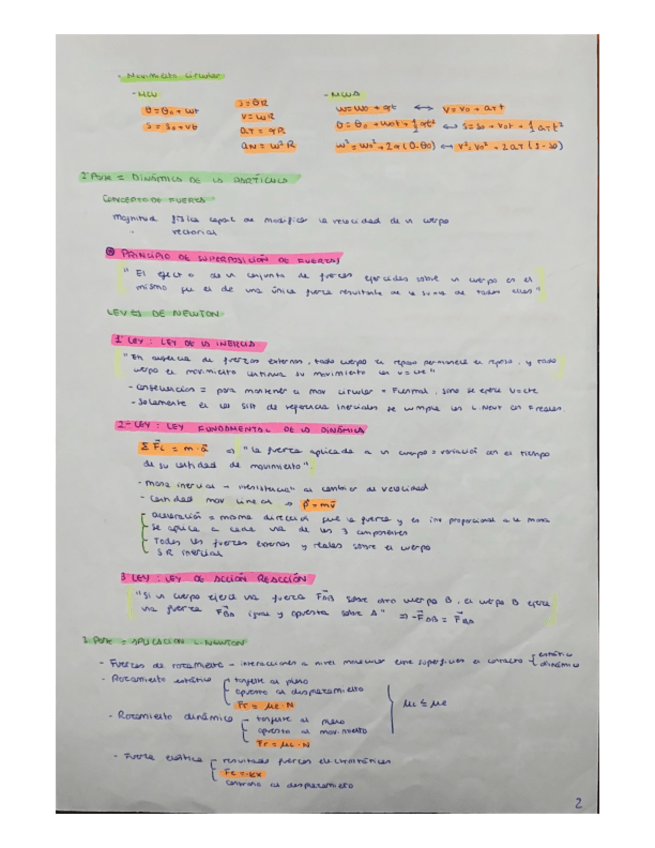 - Movimiento circular
- MCU
θ = θ₀ + ωt
s = s₀ + vt
s = θR
v = ωR
aT = αR
aN = ω²R
- MCUA
ω = ω₀ + αt ⟷ v = v₀ + aT t
θ = θ₀ + ω₀t + 1/2 αt² ⟷ s = s₀ + v₀t + 1/2 aT t²
ω² = ω₀² + 2α(θ-θ₀) ⟷ v² = v₀² + 2aT (s-s₀)
DINÁMICA DE LA PARTÍCULA
CONCEPTO DE FUERZA
Magnitud física capaz de modificar la velocidad de un cuerpo
vectorial
PRINCIPIO DE SUPERPOSICIÓN DE FUERZAS
"El efecto de un conjunto de fuerzas ejercidas sobre un cuerpo es el
mismo que el de una única fuerza resultante de la suma de todas ellas"
LEYES DE NEWTON
1ª LEY: LEY DE LA INERCIA
"En ausencia de fuerzas externas, todo cuerpo en reposo permanece en reposo, y todo
cuerpo en movimiento continua su movimiento en v = cte"
para mantener el mov circular = Fnormal, sino se ejerce v = cte
- Solamente en los sist de referencia inerciales se cumple las L.Newt con F reales.
2ª LEY: LEY FUNDAMENTAL DE LA DINÁMICA
ΣF⃗ = m·a⃗ ⇒ "La fuerza aplicada a un cuerpo = variación en el tiempo
de su cantidad de movimiento".
- masa inercial → "resistencia" al cambiar de velocidad
- Cantidad mov lineal ⇒ p⃗ = mv⃗
- aceleración = misma dirección que la fuerza y es inv proporcional a la masa
- Se aplica a cada una de las 3 componentes
- Todas las fuerzas externas y reales sobre el cuerpo
S.R inercial
3ª LEY: LEY DE ACCIÓN REACCIÓN
"Si un cuerpo ejerce una fuerza F⃗AB sobre otro cuerpo B, el cuerpo B ejerce
una fuerza F⃗BA igual y opuesta sobre A" ⇒ -F⃗AB = F⃗BA
APLICACION L.NEWTON
- Fuerzas de rozamiento - interacciones a nivel molecular entre superficies en contacto { estático
dinámico
- Rozamiento estático
tangente al plano
opuesto al desplazamiento
Fr = μe·N
- Rozamiento dinámico
tangente al plano
opuesto al movimiento
Fr = μc·N
μc ≤ μe
- Fuerza elástica
resultado fuerzas electrostáticas
Fe = -kx
contrario al desplazamiento
2